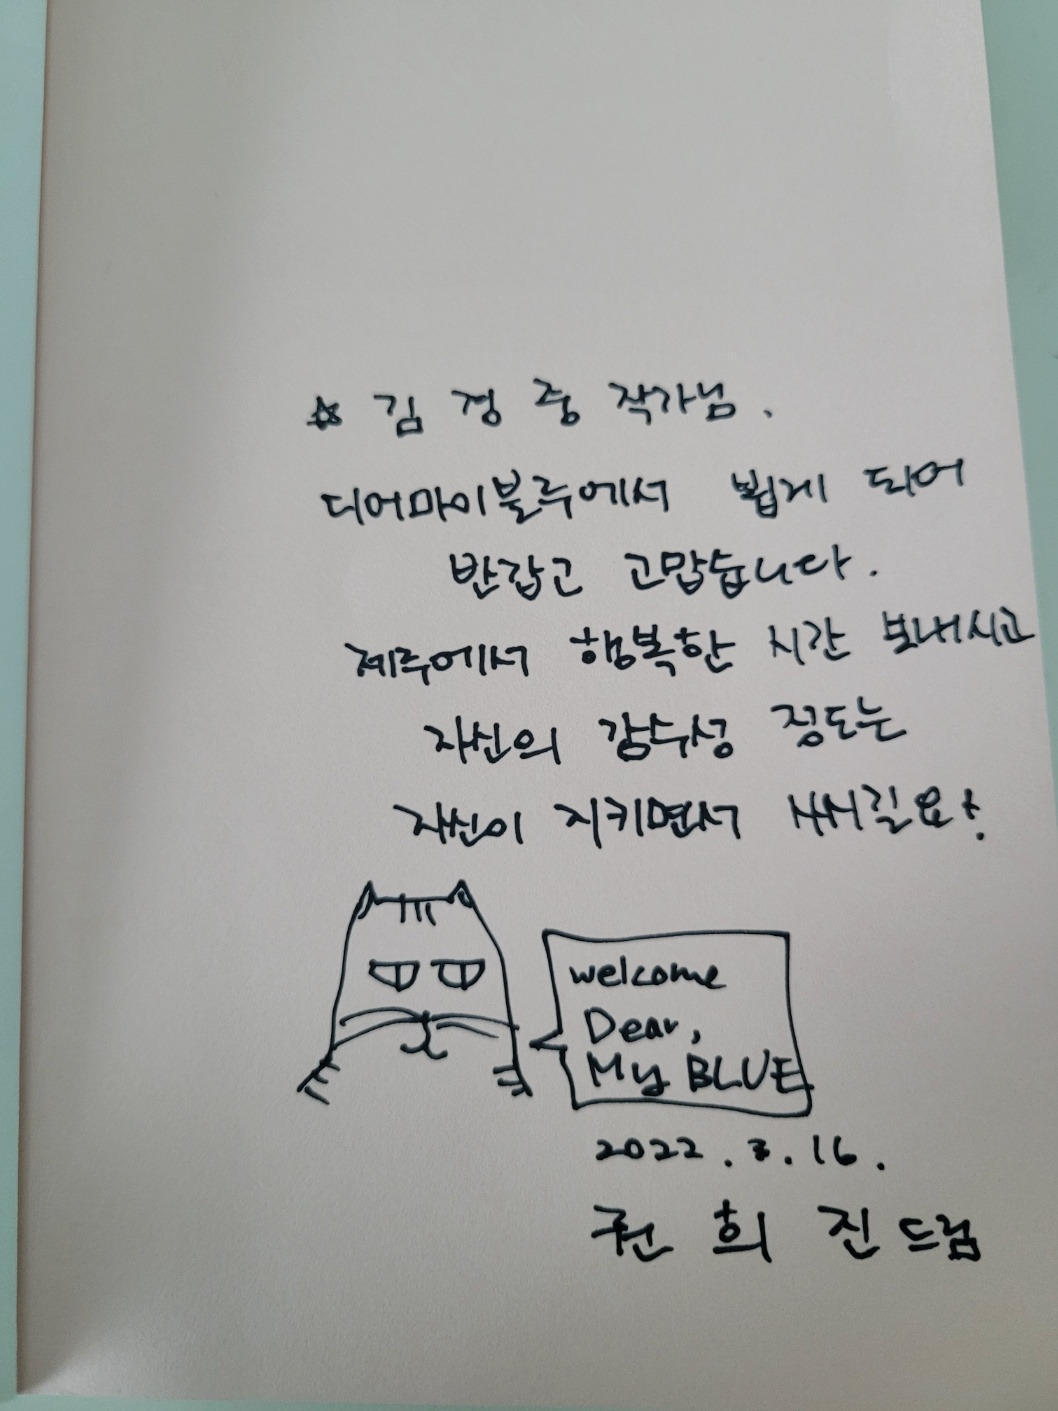 ☆ 김 경 중 작가님.
디어마이블루에서 뵙게 되어
반갑고 고맙습니다.
제주에서 행복한 시간 보내시고
자신의 감수성 정도는
자신이 지키면서 사시길요!
welcome
Dear,
My BLUE
2022. 3. 16.
권 희 진 드림